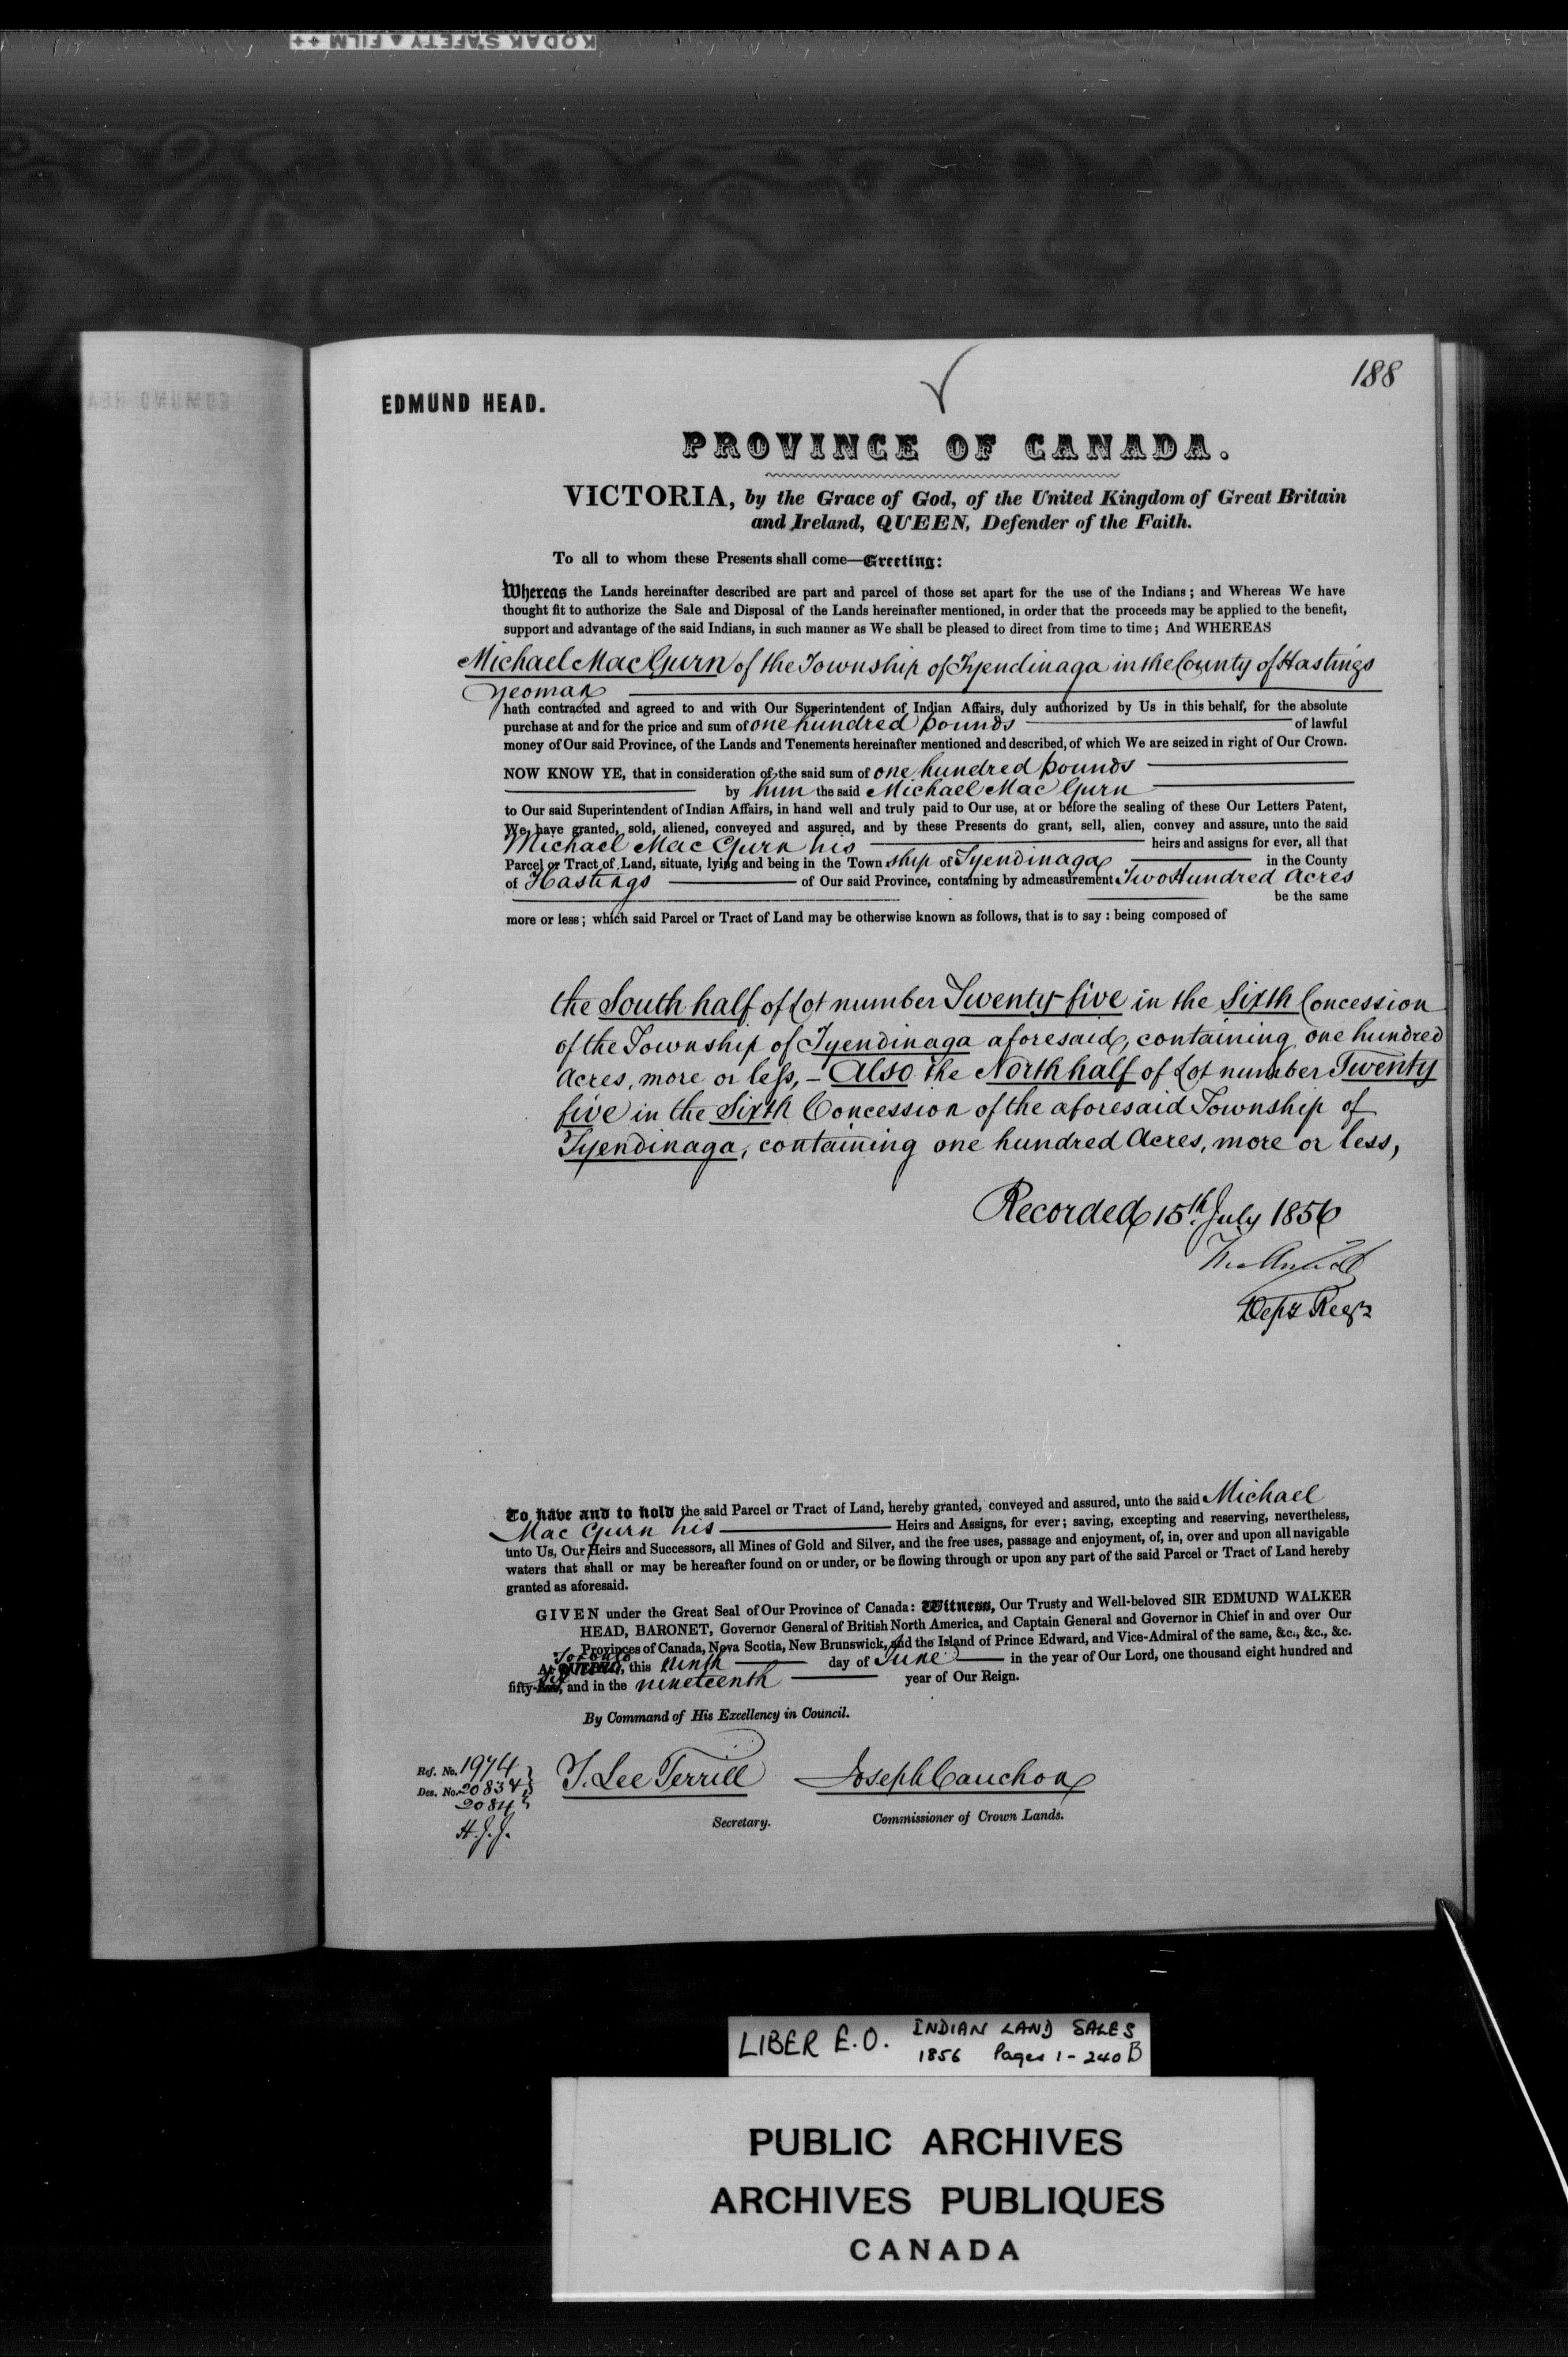 KODAK SAFETY ▲ FILM ++
188
EDMUND HEAD.
PROVINCE OF CANADA.
VICTORIA, by the Grace of God, of the United Kingdom of Great Britain
and Ireland, QUEEN, Defender of the Faith.
To all to whom these Presents shall come—Greeting:
Whereas the Lands hereinafter described are part and parcel of those set apart for the use of the Indians; and Whereas We have
thought fit to authorize the Sale and Disposal of the Lands hereinafter mentioned, in order that the proceeds may be applied to the benefit,
support and advantage of the said Indians, in such manner as We shall be pleased to direct from time to time; And WHEREAS
Michael MacGurn of the Township of Tyendinaga in the County of Hastings
Yeoman
hath contracted and agreed to and with Our Superintendent of Indian Affairs, duly authorized by Us in this behalf, for the absolute
purchase at and for the price and sum of one hundred pounds of lawful
money of Our said Province, of the Lands and Tenements hereinafter mentioned and described, of which We are seized in right of Our Crown.
NOW KNOW YE, that in consideration of the said sum of one hundred pounds
by him the said Michael Mac Gurn
to Our said Superintendent of Indian Affairs, in hand well and truly paid to Our use, at or before the sealing of these Our Letters Patent,
We have granted, sold, aliened, conveyed and assured, and by these Presents do grant, sell, alien, convey and assure, unto the said
Michael Mac Gurn his heirs and assigns for ever, all that
Parcel or Tract of Land, situate, lying and being in the Town ship of Tyendinaga in the County
of Hastings of Our said Province, containing by admeasurement Two Hundred Acres
be the same
more or less; which said Parcel or Tract of Land may be otherwise known as follows, that is to say: being composed of
the South half of Lot number Twenty-five in the Sixth Concession
of the Township of Tyendinaga aforesaid, containing one hundred
Acres, more or less, - Also the North half of Lot number Twenty
five in the Sixth Concession of the aforesaid Township of
Tyendinaga, containing one hundred Acres, more or less,
Recorded 15th July 1856
Depy Regr
To have and to hold the said Parcel or Tract of Land, hereby granted, conveyed and assured, unto the said Michael
Mac Gurn his Heirs and Assigns, for ever; saving, excepting and reserving, nevertheless,
unto Us, Our Heirs and Successors, all Mines of Gold and Silver, and the free uses, passage and enjoyment, of, in, over and upon all navigable
waters that shall or may be hereafter found on or under, or be flowing through or upon any part of the said Parcel or Tract of Land hereby
granted as aforesaid.
GIVEN under the Great Seal of Our Province of Canada: Witness, Our Trusty and Well-beloved SIR EDMUND WALKER
HEAD, BARONET, Governor General of British North America, and Captain General and Governor in Chief in and over Our
Provinces of Canada, Nova Scotia, New Brunswick, and the Island of Prince Edward, and Vice-Admiral of the same, &c., &c., &c.
At QUEBEC, Toronto this ninth day of June in the year of Our Lord, one thousand eight hundred and
fifty-six, and in the nineteenth year of Our Reign.
By Command of His Excellency in Council.
Ref. No. 1974
Des. No. 20834
2084
H.J.J.
T. Lee Terrill
Secretary.
Joseph Cauchon
Commissioner of Crown Lands.
LIBER E.O. INDIAN LAND SALES
1856 Pages 1-240B
PUBLIC ARCHIVES
ARCHIVES PUBLIQUES
CANADA